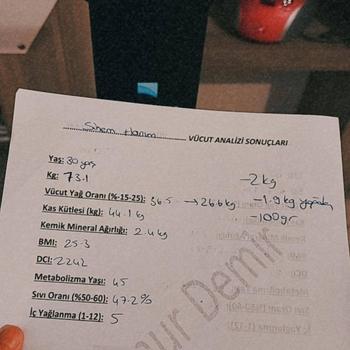 Sinem Hanım VÜCUT ANALİZİ SONUÇLARI
Yaş: 30 yaş
Kg: 73.1 -2kg
Vücut Yağ Oranı (%-15-25): 36.5 → 26.6kg -1.9 kg yağdan
Kas Kütlesi (kg): 44.1 kg -100gr
Kemik Mineral Ağırlığı: 2.4kg
BMI: 25.3
DCI: 2242
Metabolizma Yaşı: 45
Sıvı Oranı (%50-60): 47.2%
İç Yağlanma (1-12): 5
nur Demir